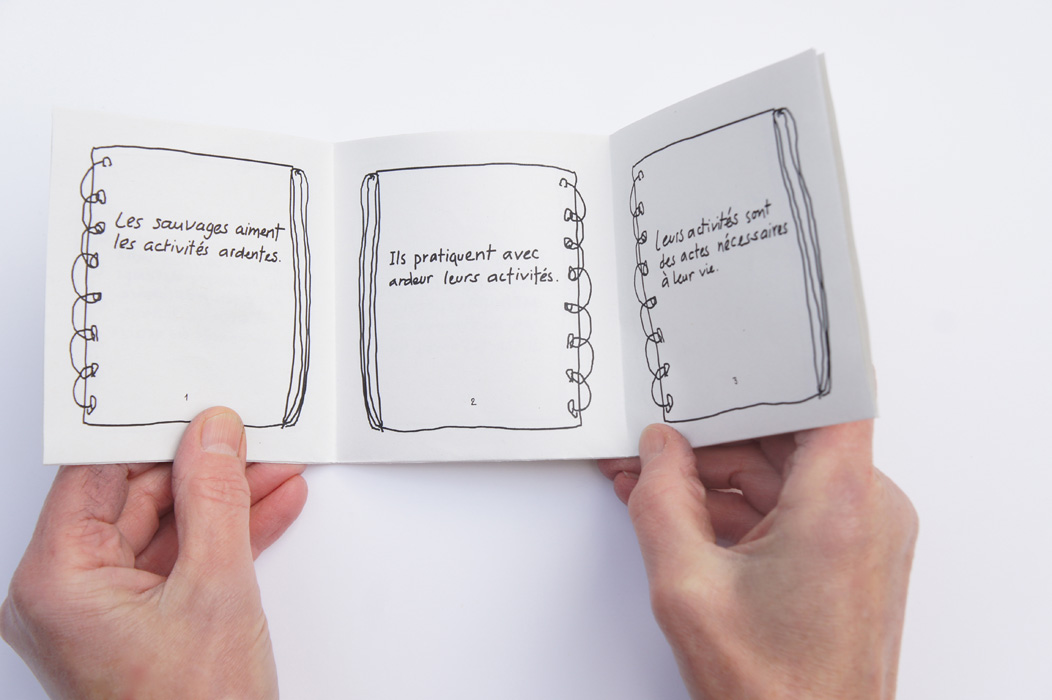 Les sauvages aiment
les activités ardentes.
1
Ils pratiquent avec
ardeur leurs activités.
2
Leurs activités sont
des actes nécessaires
à leur vie.
3